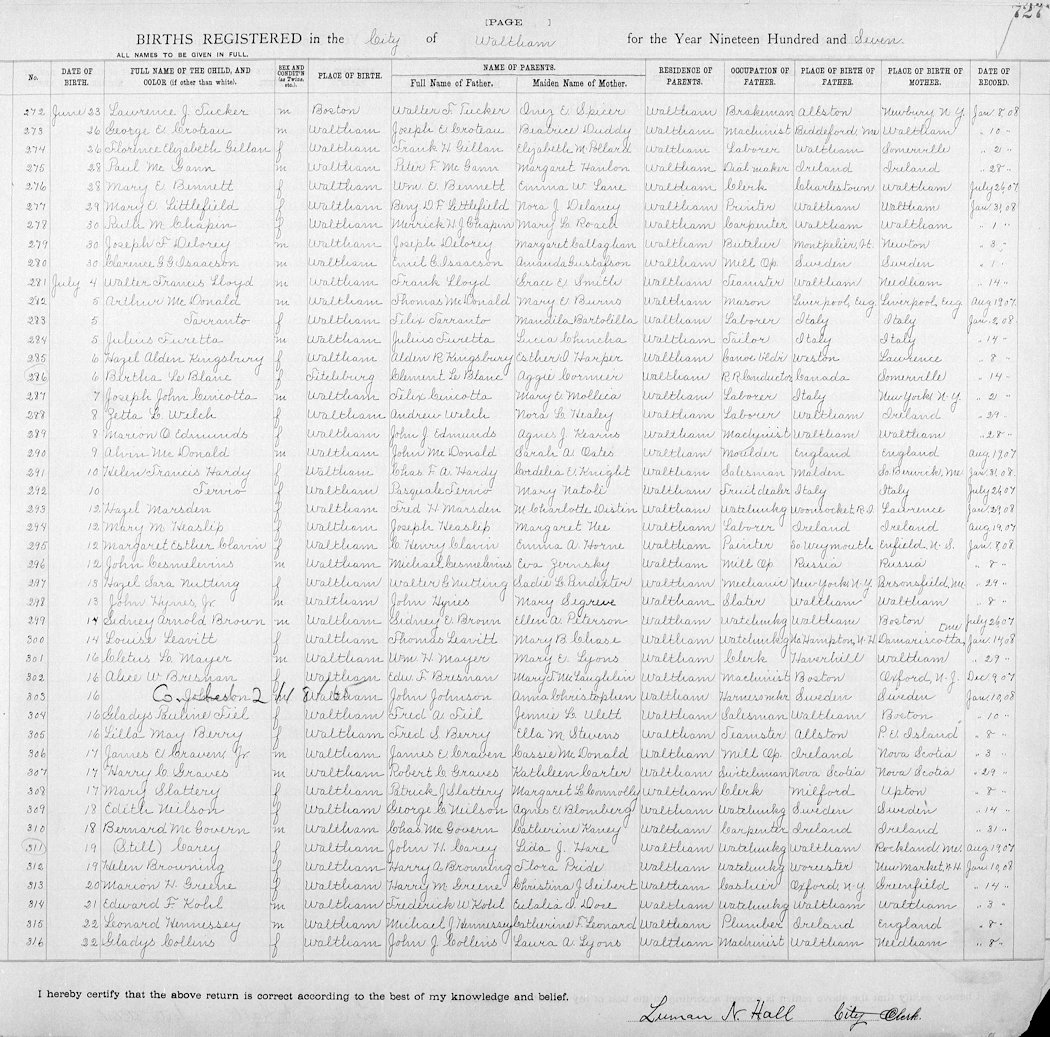 727
[PAGE ]
BIRTHS REGISTERED in the City of Waltham for the Year Nineteen Hundred and Seven.
ALL NAMES TO BE GIVEN IN FULL.
No. DATE OF BIRTH. FULL NAME OF THE CHILD, AND COLOR (if other than white). SEX AND CONDIT'N (as Twins, etc.). PLACE OF BIRTH. NAME OF PARENTS. Full Name of Father. Maiden Name of Mother. RESIDENCE OF PARENTS. OCCUPATION OF FATHER. PLACE OF BIRTH OF FATHER. PLACE OF BIRTH OF MOTHER. DATE OF RECORD.
272 June 23 Lawrence J. Tucker m Boston Walter F Tucker Inez E Spicer Waltham Brakeman Allston Newbury N.Y. Jan 8, 08
273 26 George E Croteau m Waltham Joseph E Croteau Beatrice Duddy Waltham Machinist Biddeford, Me Waltham " 10 "
274 26 Florence Elizabeth Gillan f Waltham Frank H Gillan Elizabeth M Pollard Waltham Laborer Waltham Somerville " 21 "
275 28 Paul Mc Gann m Waltham Peter F Mc Gann Margaret Hanlon Waltham Dial maker Ireland Ireland " 28 "
276 28 Mary E Bennett f Waltham Wm E Bennett Emma W Lane Waltham Clerk Charlestown Waltham July 26, 07
277 29 Mary E Littlefield f Waltham Benj D F Littlefield Nora J Delaney Waltham Printer Waltham Waltham Jan 31, 08
278 30 Ruth M Chapin f Waltham Merrick W J Chapin Mary L Roach Waltham Carpenter Waltham Waltham " 1 "
279 30 Joseph F Delorey m Waltham Joseph Delorey Margaret Callaghan Waltham Butcher Montpelier, Vt. Newton " 3 "
280 30 Clarence G G Isaacson m Waltham Emil C Isaacson Amanda Gustafson Waltham Mill Op. Sweden Sweden " 1 "
281 July 4 Walter Francis Lloyd m Waltham Frank Lloyd Grace E Smith Waltham Teamster Waltham Needham " 14 "
282 5 Arthur Mc Donald m Waltham Thomas McDonald Mary E Burns Waltham Mason Liverpool, Eng. Liverpool, Eng Aug 19, 07
283 5 Tarranto f Waltham Felix Tarranto Mandila Bartolilla Waltham Laborer Italy Italy Jan. 2, 08
284 5 Julius Furetta m Waltham Julius Furetta Lucia Chincha Waltham Tailor Italy Italy " 14 "
285 6 Hazel Alden Kingsbury f Waltham Alden R Kingsbury Esther I Harper Waltham Canoe bldr Weston Lawrence " 8 "
286 6 Bertha Le Blanc f Fitchburg Clement Le Blanc Aggie Cormier Waltham R.R Conductor Canada Somerville " 14 "
287 7 Joseph John Cincotta m Waltham Felix Cincotta Mary E Mollica Waltham Laborer Italy New York, N.Y. " 21 "
288 8 Zetta L Welch f Waltham Andrew Welch Nora L Healey Waltham Laborer Waltham Ireland " 29 "
289 8 Marion O Edmunds f Waltham John J Edmunds Agnes J Kearns Waltham Machinist Waltham Waltham " 28 "
290 9 Alvin Mc Donald m Waltham John Mc Donald Sarah A Oates Waltham Moulder England England Aug 19, 07
291 10 Helen Francis Hardy f Waltham Chas F A Hardy Cordelia E Knight Waltham Salesman Malden So. Berwick, Me Jan 31, 08
292 10 Fervio f Waltham Pasquale Fervio Mary Natoli Waltham Fruit dealer Italy Italy July 26, 07
293 12 Hazel Marsden f Waltham Fred H Marsden M Charlotte Distin Waltham Watchmkg Woonsocket R.I. Lawrence Jan 29, 08
294 12 Mary M Heaslip f Waltham Joseph Heaslip Margaret Nee Waltham Laborer Ireland Ireland Aug 19, 07
295 12 Margaret Esther Clavin f Waltham C Henry Clavin Emma A Horne Waltham Painter So Weymouth Enfield, N.S. Jan. 8, 08
296 12 John Cesmelevins m Waltham Michael Cesmelevins Eva Zernsky Waltham Mill Op Russia Russia " 8 "
297 13 Hazel Sara Nutting f Waltham Walter C Nutting Sadie L Pendexter Waltham Mechanic New York N.Y Parsonsfield, Me " 29 "
298 13 John Hynes, Jr m Waltham John Hynes Mary Segreve Waltham Slater Waltham Waltham " 8 "
299 14 Sidney Arnold Brown m Waltham Sidney E Brown Ellen A Peterson Waltham Watchmkg Waltham Boston July 26, 07
300 14 Louise Leavitt f Waltham Thomas Leavitt Mary B Chase Waltham Watchmkg No Hampton, N.H Damariscotta, [Me Jan. 14, 08
301 16 Cletus L Mayer m Waltham Wm. H Mayer Mary E Lyons Waltham Clerk Haverhill Waltham " 29 "
302 16 Alice W Bresnan f Waltham Edw F Bresnan Mary F McLaughlin Waltham Machinist Boston Oxford, N.J. Dec 9, 07
303 16 Co. Johnson Waltham John Johnson Anna Christophsen Waltham Harness mkr Sweden Sweden Jan. 10, 08
304 16 Gladys Pauline Fiel f Waltham Fred A Fiel Jennie L Ulett Waltham Salesman Waltham Boston " 10 "
305 16 Lilla May Berry f Waltham Fred S Berry Ella M Stevens Waltham Teamster Allston P.E Island " 8 "
306 17 James E Craven Jr m Waltham James E Craven Cassie McDonald Waltham Mill Op. Ireland Nova Scotia " 3 "
307 17 Harry C Graves m Waltham Robert C Graves Kathleen Carter Waltham Switchman Nova Scotia Nova Scotia " 29 "
308 17 Mary Slattery f Waltham Patrick J Slattery Margaret L Connolly Waltham Clerk Milford Upton " 8 "
309 18 Edith Neilson f Waltham George C Neilson Agnes E Blomberg Waltham Watchmkg Sweden Sweden " 14 "
310 18 Bernard Mc Govern m Waltham Chas Mc Govern Catherine Kaney Waltham Carpenter Ireland Ireland " 31 "
311 19 (Still) Carey f Waltham John H Carey Lida J. Hare Waltham Watchmkg Waltham Rockland, Me. Aug 19, 07
312 19 Helen Browning f Waltham Harry A Browning Flora Pride Waltham Watchmkg Worcester New Market, N.H. Jan. 10, 08
313 20 Marion H Greene f Waltham Harry M Greene Christina J Seibert Waltham Cashier Oxford, N.Y. Greenfield " 14 "
314 21 Edward F Kohl m Waltham Frederick W Kohl Eulalia I Dose Waltham Watchmkg Waltham Waltham " 3 "
315 22 Leonard Hennessey m Waltham Michael J Hennessey Catherine F Leonard Waltham Plumber Ireland England " 8 "
316 22 Gladys Collins f Waltham John J Collins Laura A Lyons Waltham Machinist Waltham Needham " 8 "
I hereby certify that the above return is correct according to the best of my knowledge and belief.
Luman N. Hall City Clerk.